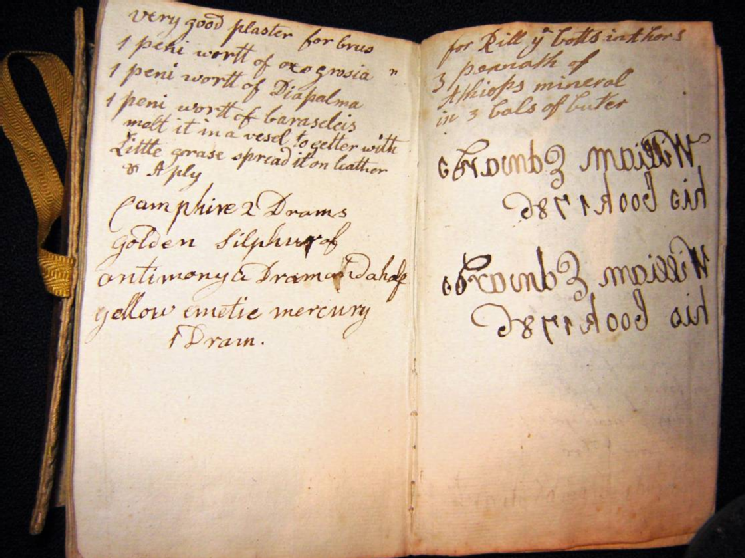 very good plaster for brus
1 peni wortt of oxogrosia
1 peni wortt of Diapalma
1 peni wortt of baraseleis
malt it in a vesel togetter with
Little grase spread it on leather
& Aply
Camphire 2 Drams
golden Silphur of
antimony a Dram and a half
yellow emetic mercury
1 Dram.
for Kill yᵉ botts in a hors
3 pennath of
Athiops mineral
in 3 bals of buter
William Edwards
his book 1786
William Edwards
his book 1786